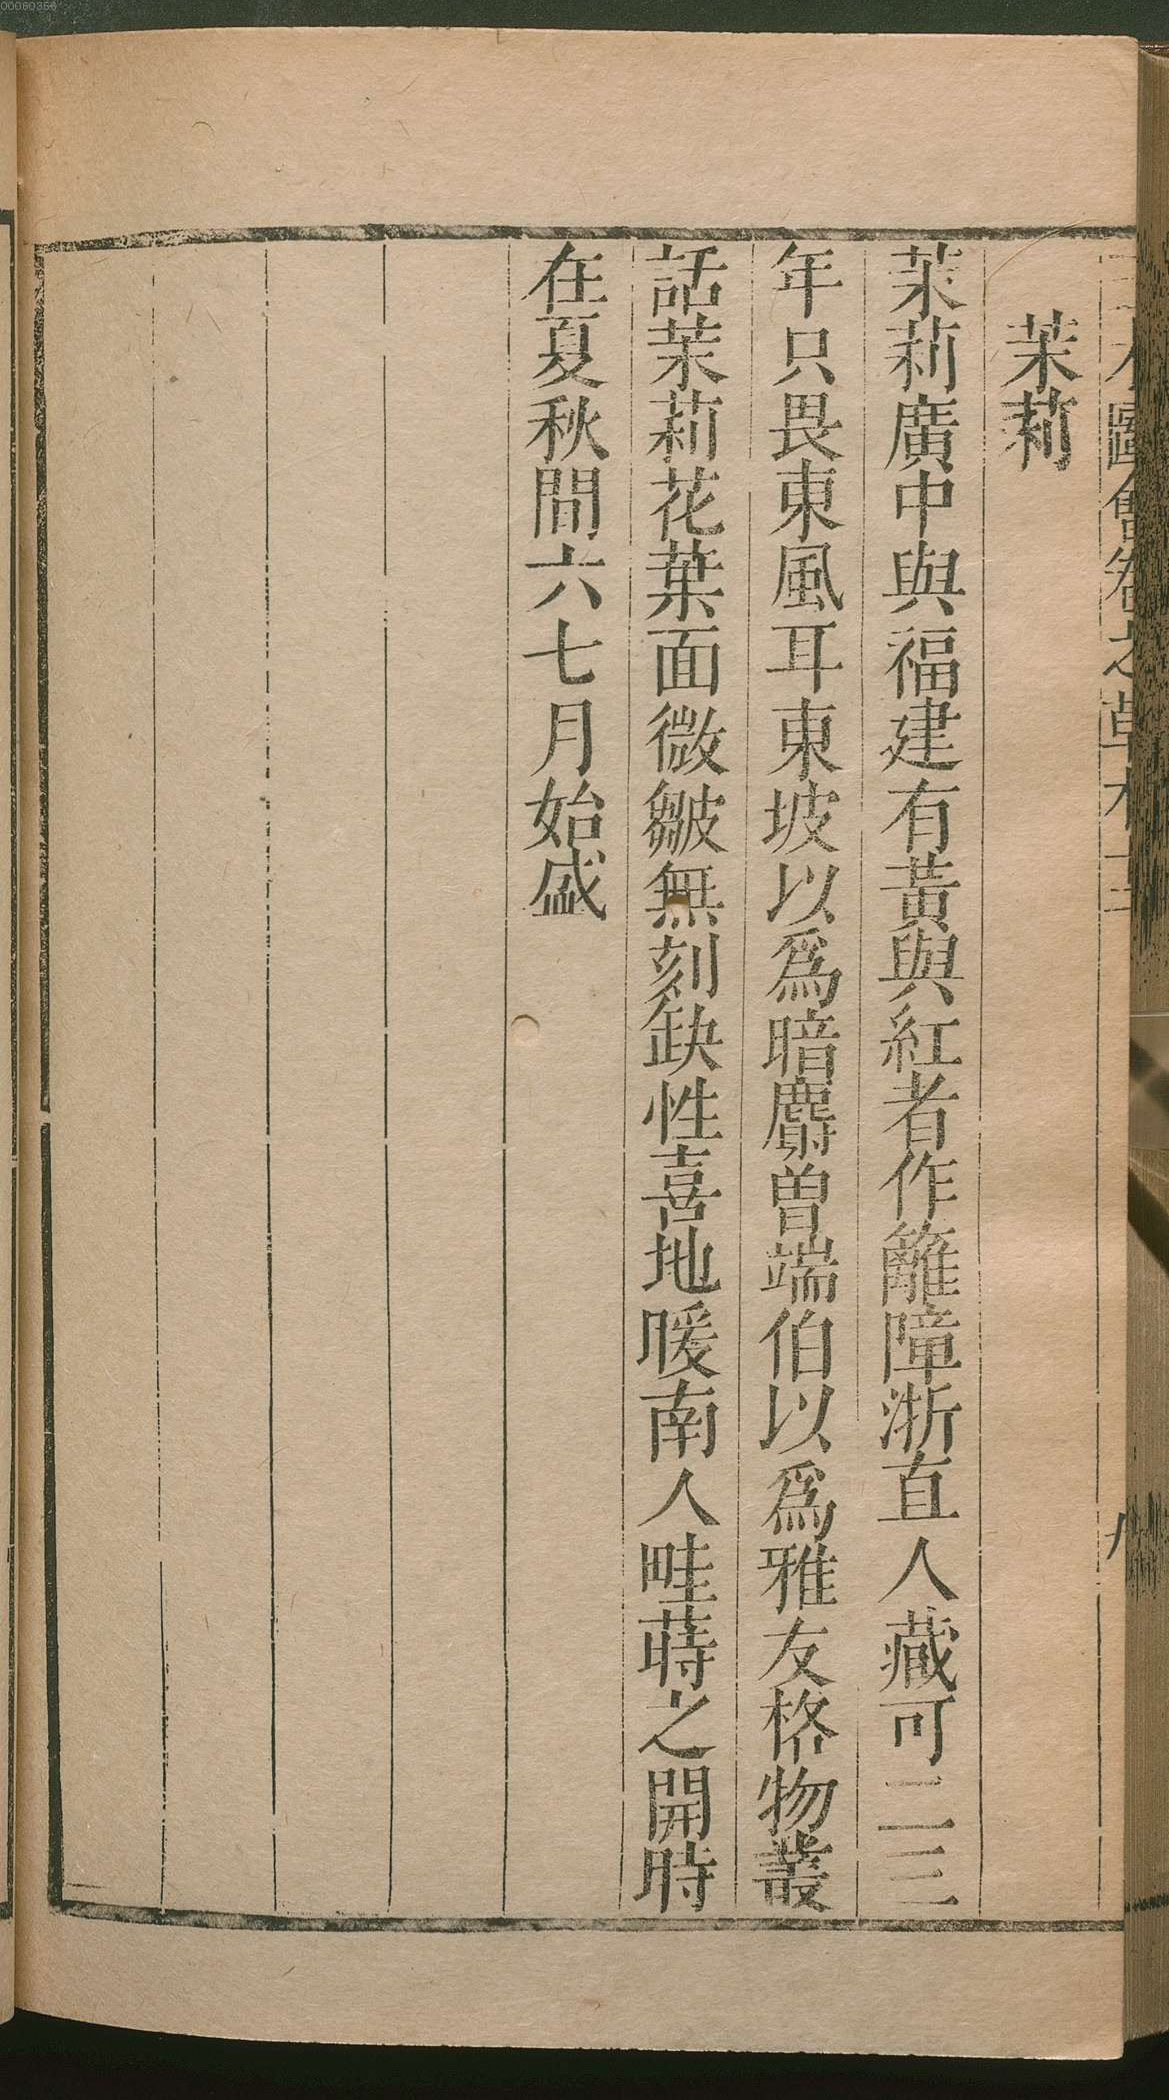 00060356
茉莉
茉莉廣中與福建有黃與紅者作籬障浙直人藏可二三
年只畏東風耳東坡以爲暗麝曾端伯以爲雅友格物叢
話茉莉花葉面微皺無刻缺性喜地暖南人畦蒔之開時
在夏秋間六七月始盛